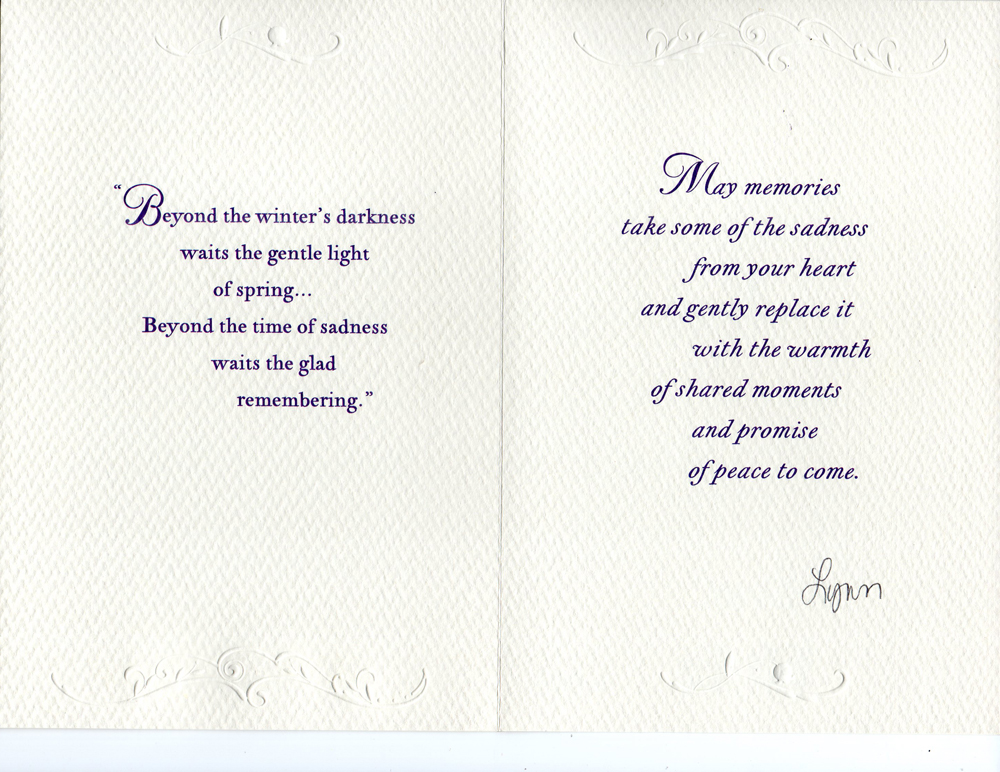 “Beyond the winter’s darkness
waits the gentle light
of spring...
Beyond the time of sadness
waits the glad
remembering.”
May memories
take some of the sadness
from your heart
and gently replace it
with the warmth
of shared moments
and promise
of peace to come.
Lynn